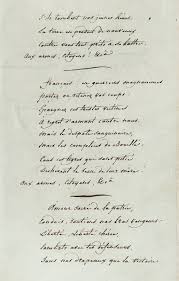 S'ils tombent nos jeunes héros
La terre en produit de nouveaux
Contre vous tout prêts à se battre.
Aux armes, citoyens! &c.
Français, en guerriers magnanimes
portez ou retenez vos coups
Epargnez ces tristes victimes
à regret s'armant contre nous.
Mais le despote sanguinaire,
Mais les complices de Bouillé
Tous ces tigres qui sans pitié
Déchirent le sein de leur mère
Aux armes, citoyens, &c.
Amour sacré de la patrie,
Conduis, soutiens nos bras vengeurs
Liberté, Liberté chérie
Combats avec tes défenseurs
Sous nos drapeaux que la victoire